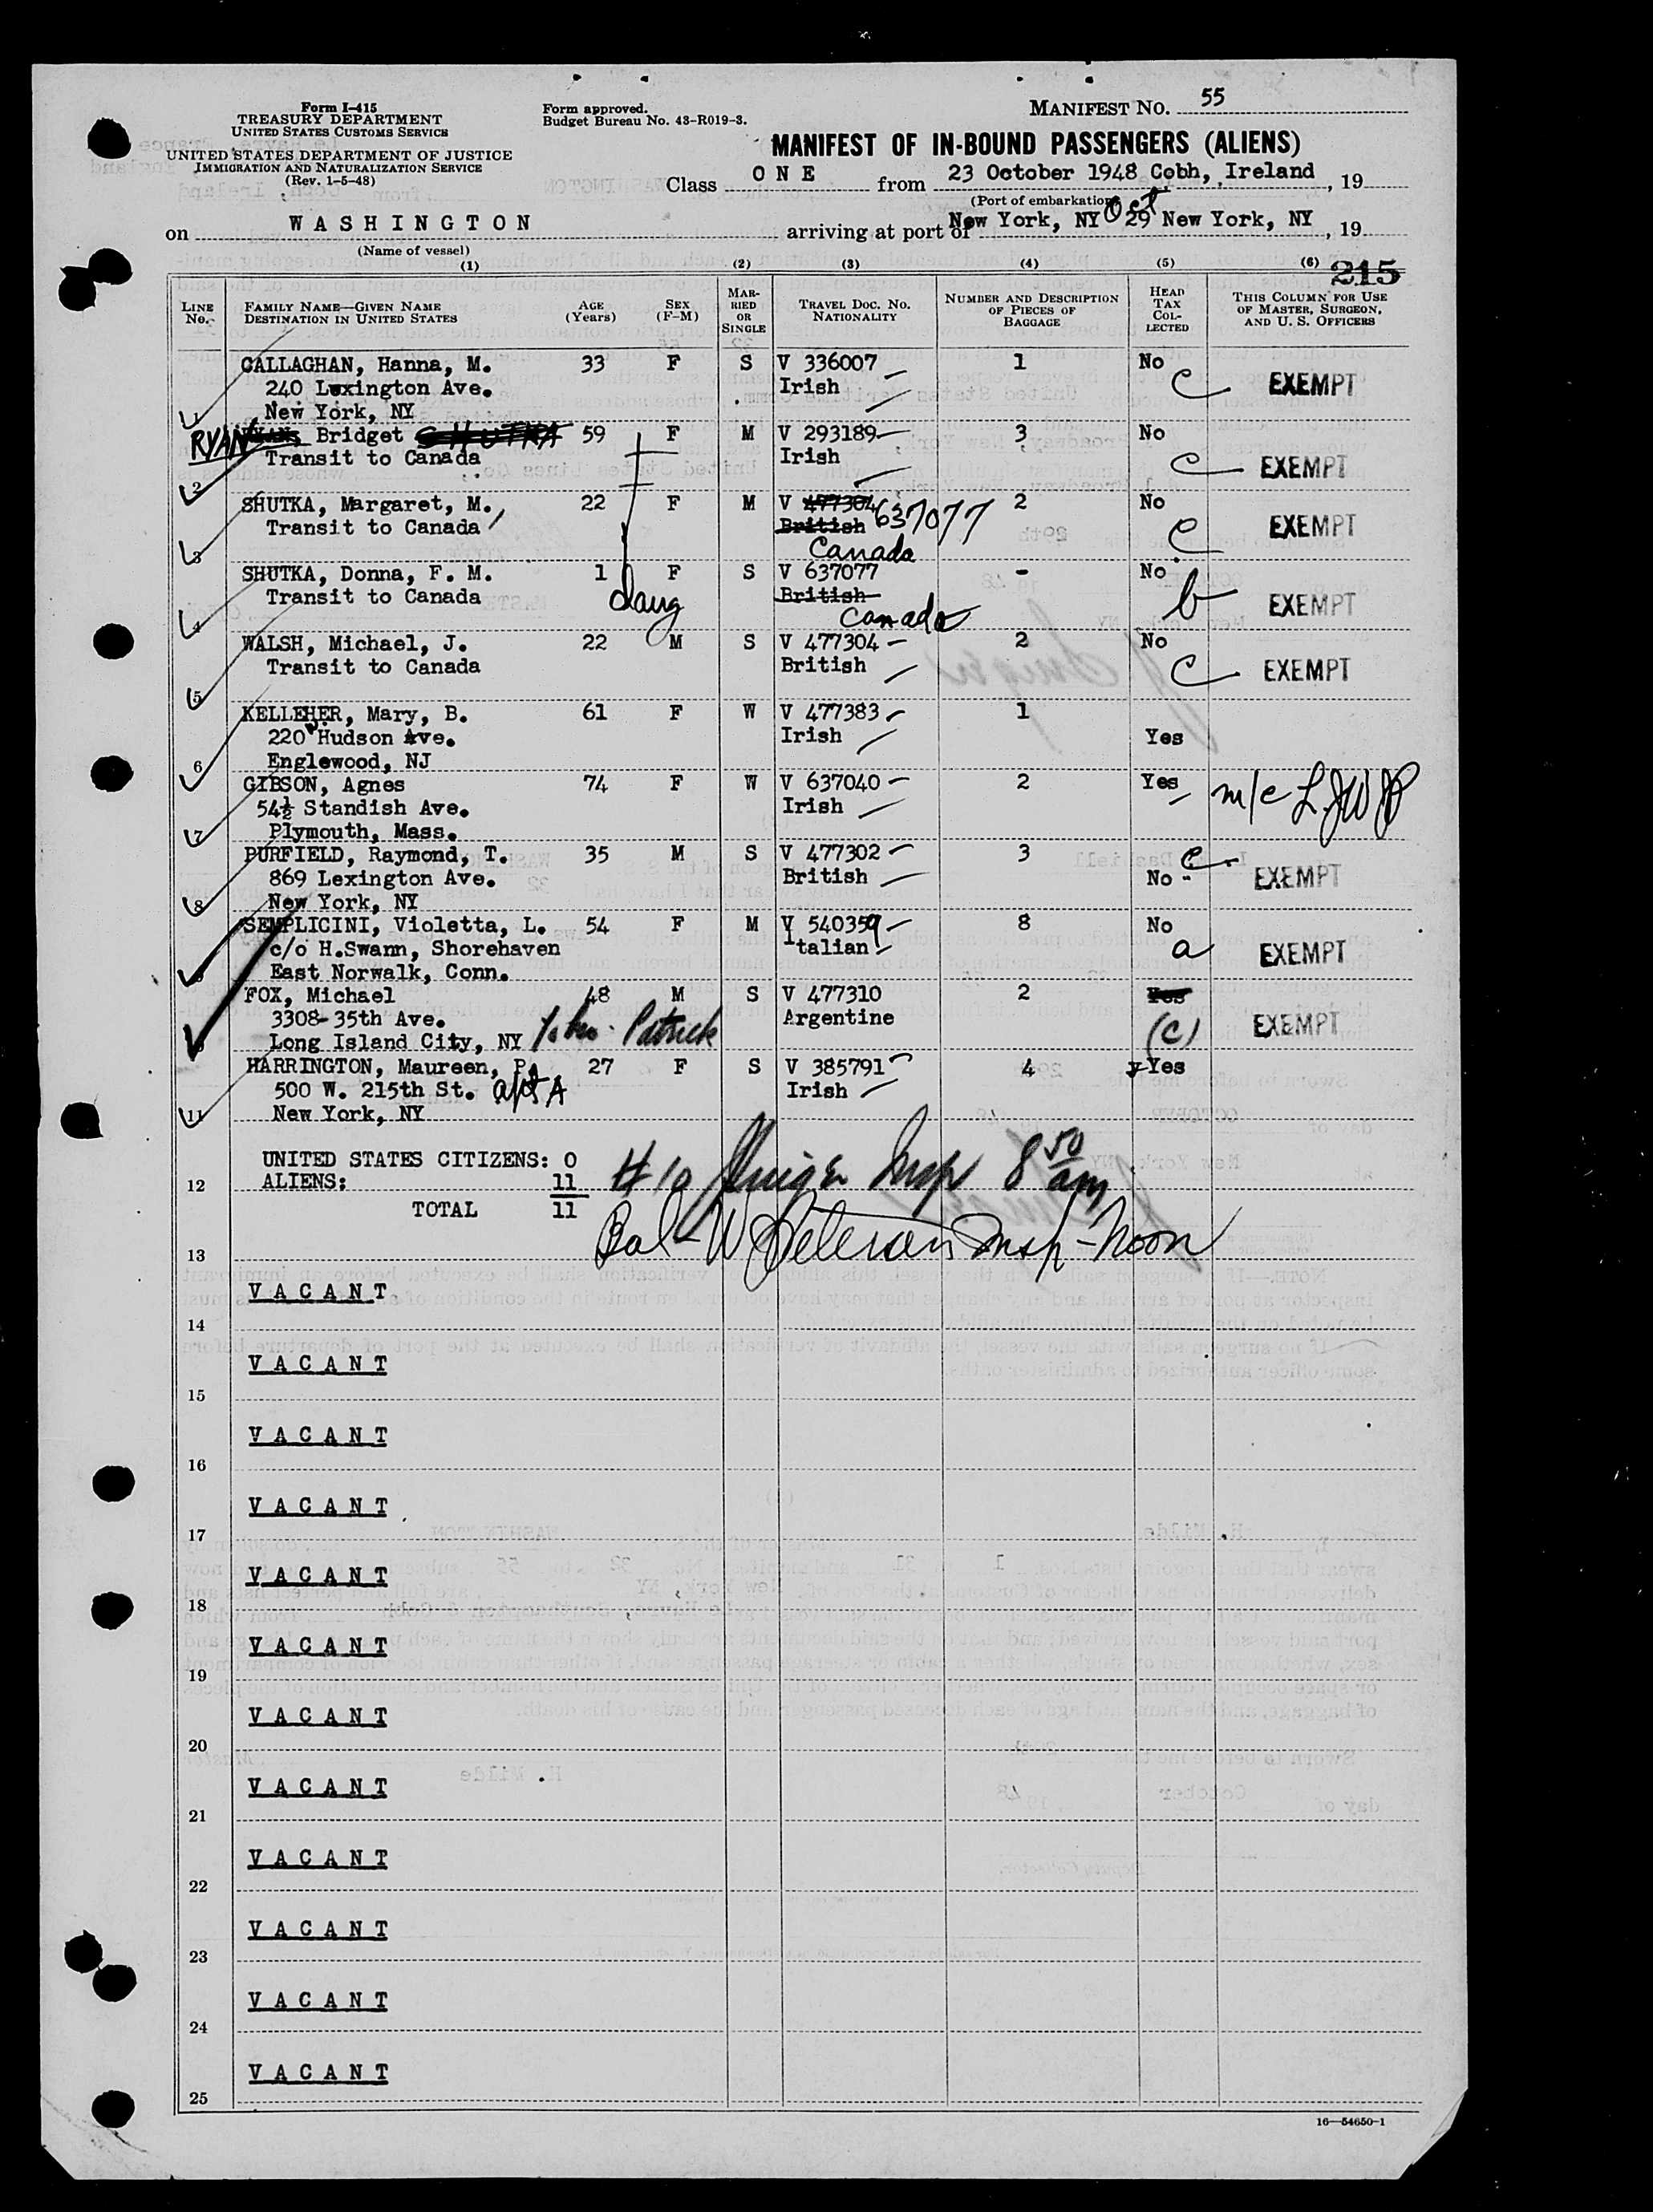 Form I-415
TREASURY DEPARTMENT
UNITED STATES CUSTOMS SERVICE
UNITED STATES DEPARTMENT OF JUSTICE
IMMIGRATION AND NATURALIZATION SERVICE
(Rev. 1-5-48)
Form approved.
Budget Bureau No. 43-R019-3.
MANIFEST NO. 55
MANIFEST OF IN-BOUND PASSENGERS (ALIENS)
Class O N E from 23 October 1948 Cobh, Ireland, 19
(Port of embarkation)
on W A S H I N G T O N arriving at port of New York, NY Oct 29 New York, NY, 19
(Name of vessel)
(1) (2) (3) (4) (5) (6) 215
LINE No. FAMILY NAME—GIVEN NAME DESTINATION IN UNITED STATES AGE (Years) SEX (F-M) MARRIED OR SINGLE TRAVEL DOC. NO. NATIONALITY NUMBER AND DESCRIPTION OF PIECES OF BAGGAGE HEAD TAX COLLECTED THIS COLUMN FOR USE OF MASTER, SURGEON, AND U. S. OFFICERS
CALLAGHAN, Hanna, M. 33 F S V 336007 1 No
240 Lexington Ave. Irish C EXEMPT
1 New York, NY
RYAN Bridget SHUTKA 59 F M V 293189 3 No
Transit to Canada Irish C EXEMPT
2
SHUTKA, Margaret, M. 22 F M V 477304 637077 2 No
Transit to Canada British C EXEMPT
3 Canada
SHUTKA, Donna, F. M. 1 F S V 637077 - No
Transit to Canada daug British b EXEMPT
4 Canada
WALSH, Michael, J. 22 M S V 477304 2 No
Transit to Canada British C EXEMPT
5
KELLEHER, Mary, B. 61 F W V 477383 1
220 Hudson Ave. Irish Yes
6 Englewood, NJ
GIBSON, Agnes 74 F W V 637040 2 Yes m/c
54½ Standish Ave. Irish
7 Plymouth, Mass.
PURFIELD, Raymond, T. 35 M S V 477302 3 C
869 Lexington Ave. British No EXEMPT
8 New York, NY
SEMPLICINI, Violetta, L. 54 F M V 540359 8 No
c/o H.Swann, Shorehaven Italian a EXEMPT
East Norwalk, Conn.
FOX, Michael 48 M S V 477310 2 Yes
3308-35th Ave. Argentine (C) EXEMPT
Long Island City, NY Patrick
HARRINGTON, Maureen, P. 27 F S V 385791 4 Yes
500 W. 215th St. apt A Irish
11 New York, NY
UNITED STATES CITIZENS: 0
12 ALIENS: 11
TOTAL 11
#10 Insp 8 50 am
13 Bal- W Peterson Insp - Noon
V A C A N T
14
V A C A N T
15
V A C A N T
16
V A C A N T
17
V A C A N T
18
V A C A N T
19
V A C A N T
20
V A C A N T
21
V A C A N T
22
V A C A N T
23
V A C A N T
24
V A C A N T
25
16—54650-1